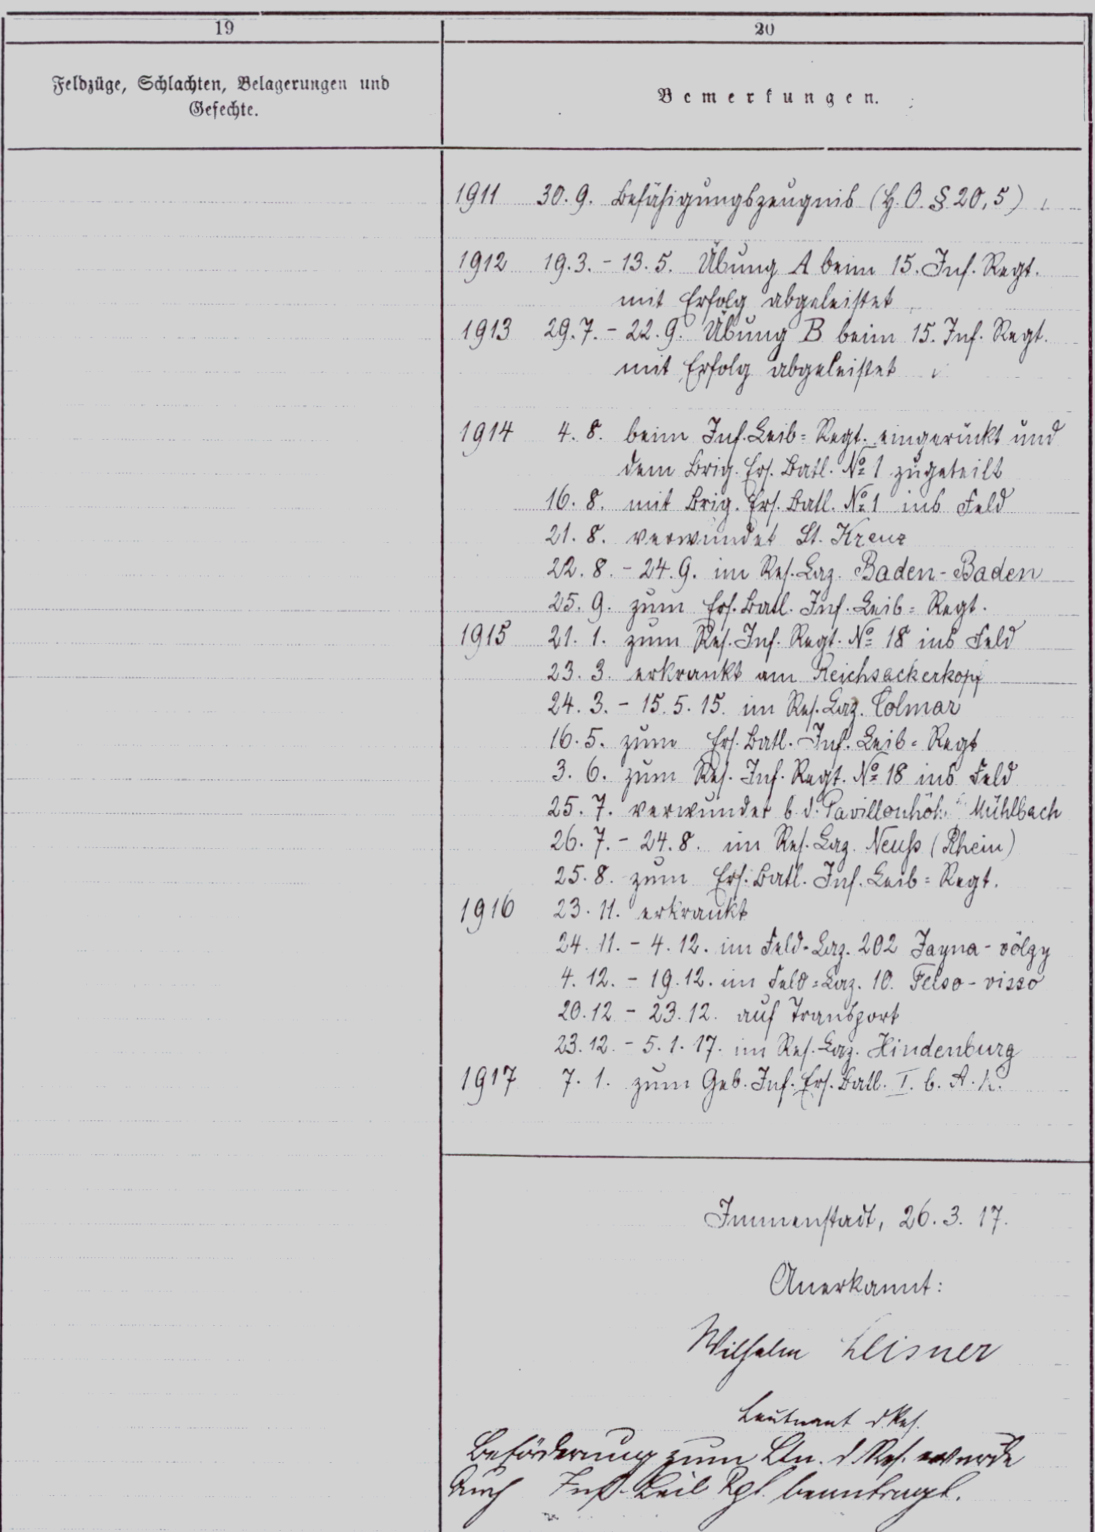 19
20
Feldzüge, Schlachten, Belagerungen und
Gefechte.
Bemerkungen.
1911 30.9. Befähigungszeugnis (H.O. § 20,5)
1912 19.3. - 13.5. Übung A beim 15. Inf. Regt.
mit Erfolg abgeleistet
1913 29.7. - 22.9. Übung B beim 15. Inf. Regt.
mit Erfolg abgeleistet
1914 4.8. beim Inf. Leib-Regt. eingerückt und
dem Brig. Ers. Batl. № 1 zugeteilt
16.8. mit Brig. Ers. Batl. № 1 ins Feld
21.8. verwundet St. Kreuz
22.8. - 24.9. im Res. Laz. Baden-Baden
25.9. zum Ers. Batl. Inf. Leib-Regt.
1915 21.1. zum Res. Inf. Regt. № 18 ins Feld
23.3. erkrankt am Reichsackerkopf
24.3. - 15.5.15. im Res. Laz. Colmar
16.5. zum Ers. Batl. Inf. Leib-Regt
3.6. zum Res. Inf. Regt. № 18 ins Feld
25.7. verwundet b. d. Pavillonhöh. Mühlbach
26.7. - 24.8. im Res. Laz. Neuß (Rhein)
25.8. zum Ers. Batl. Inf. Leib-Regt.
1916 23.11. erkrankt
24.11. - 4.12. im Feld-Laz. 202 Jayna-völgy
4.12. - 19.12. im Feld-Laz. 10. Felso-visso
20.12 - 23.12. auf Transport
23.12. - 5.1.17. im Res. Laz. Hindenburg
1917 7.1. zum Geb. Inf. Ers. Batl. I. b. A. K.
Immenstadt, 26.3.17.
Anerkannt:
Wilhelm Leisner
Leutnant d. Res.
Beförderung zum Ltn. d. Res. wurde
Inf. Leib Rgt. beantragt.